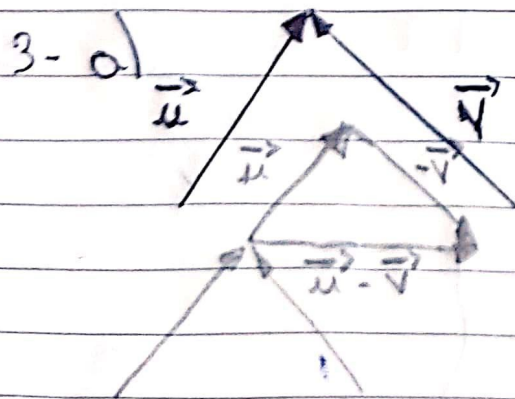 3- a)
u⃗
v⃗
u⃗
-v⃗
u⃗ - v⃗